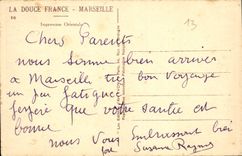 LA DOUCE FRANCE - MARSEILLE
16
Impression Originale
13
Chers Parents
nous somme bien arriver
a Marseille très bon voyage
un peu fatigué
j'espère que votre santée est
bonne
nous vous embrassent bien
Suzanne